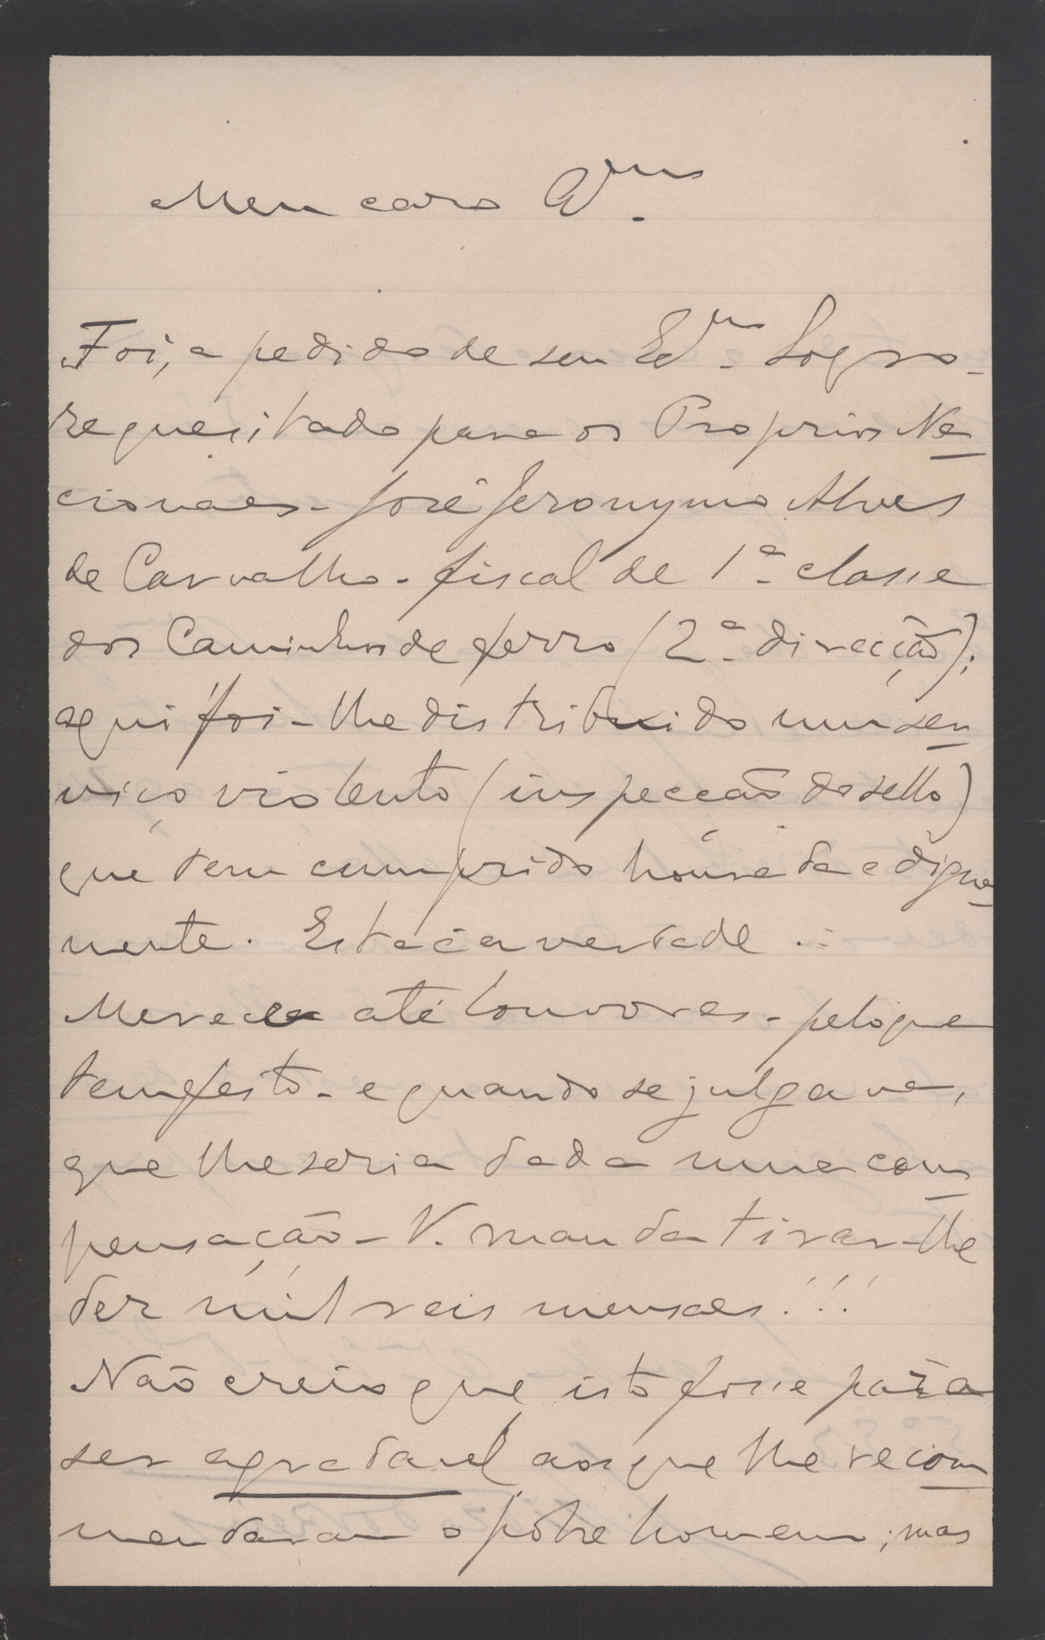 Meu caro Am.º
Foi, a pedido de seu Ex.mo Sogro -
requesitado para os Proprios Na
cionaes - José Jeronymo Alves
de Carvalho - fiscal de 1ª classe
dos Caminhos de ferro (2ª direcção);
aqui foi-lhe distribuido um ser
viço violento (inspecção do sello)
que tem cumprido honrada e digna
mente. Esta é a verdade .
Merecia até louvores - pelo que
tem feito - e quando se julgava,
que lhe seria dada uma com
pensação - V. manda tirar-lhe
dez mil reis mensaes!!!
Não creio que isto fosse para
ser agradavel aos que lhe recom
mendaram o pobre homem; mas